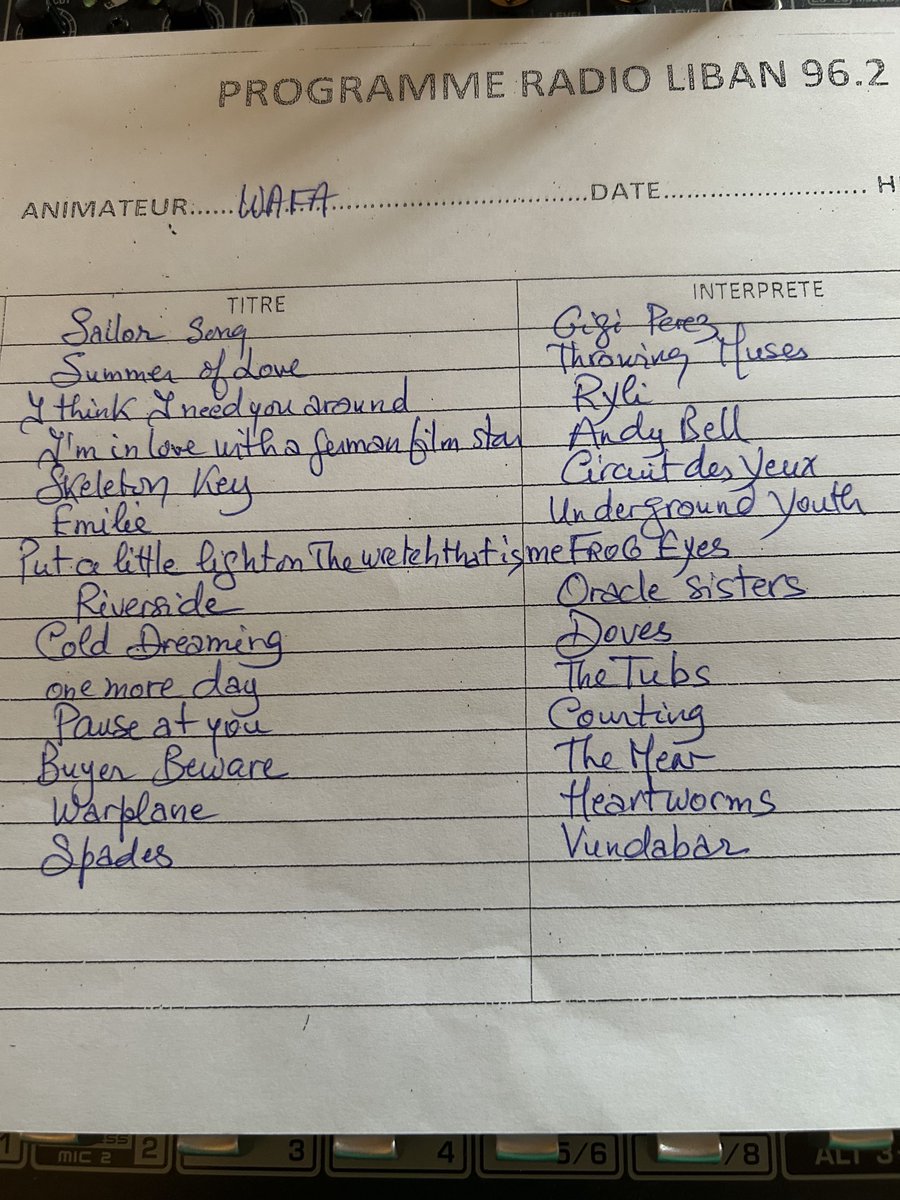 PROGRAMME RADIO LIBAN 96.2
ANIMATEUR......WAFA.................................DATE.......................... H
TITRE INTERPRETE
Sailor Song Gigi Perez
Summer of Love Throwing Muses
I think I need you around Ryli
I'm in love with a german film star Andy Bell
Skeleton Key Circuit des Yeux
Emilie Underground Youth
Put a little light on The wretch that is me FROG Eyes
Riverside Oracle Sisters
Cold Dreaming Doves
one more day The Tubs
Pause at you Counting
Buyer Beware The Men
Warplane Heartworms
Spades Vundabar
MIC 2 2 3 4 5/6 /8 ALT 3-